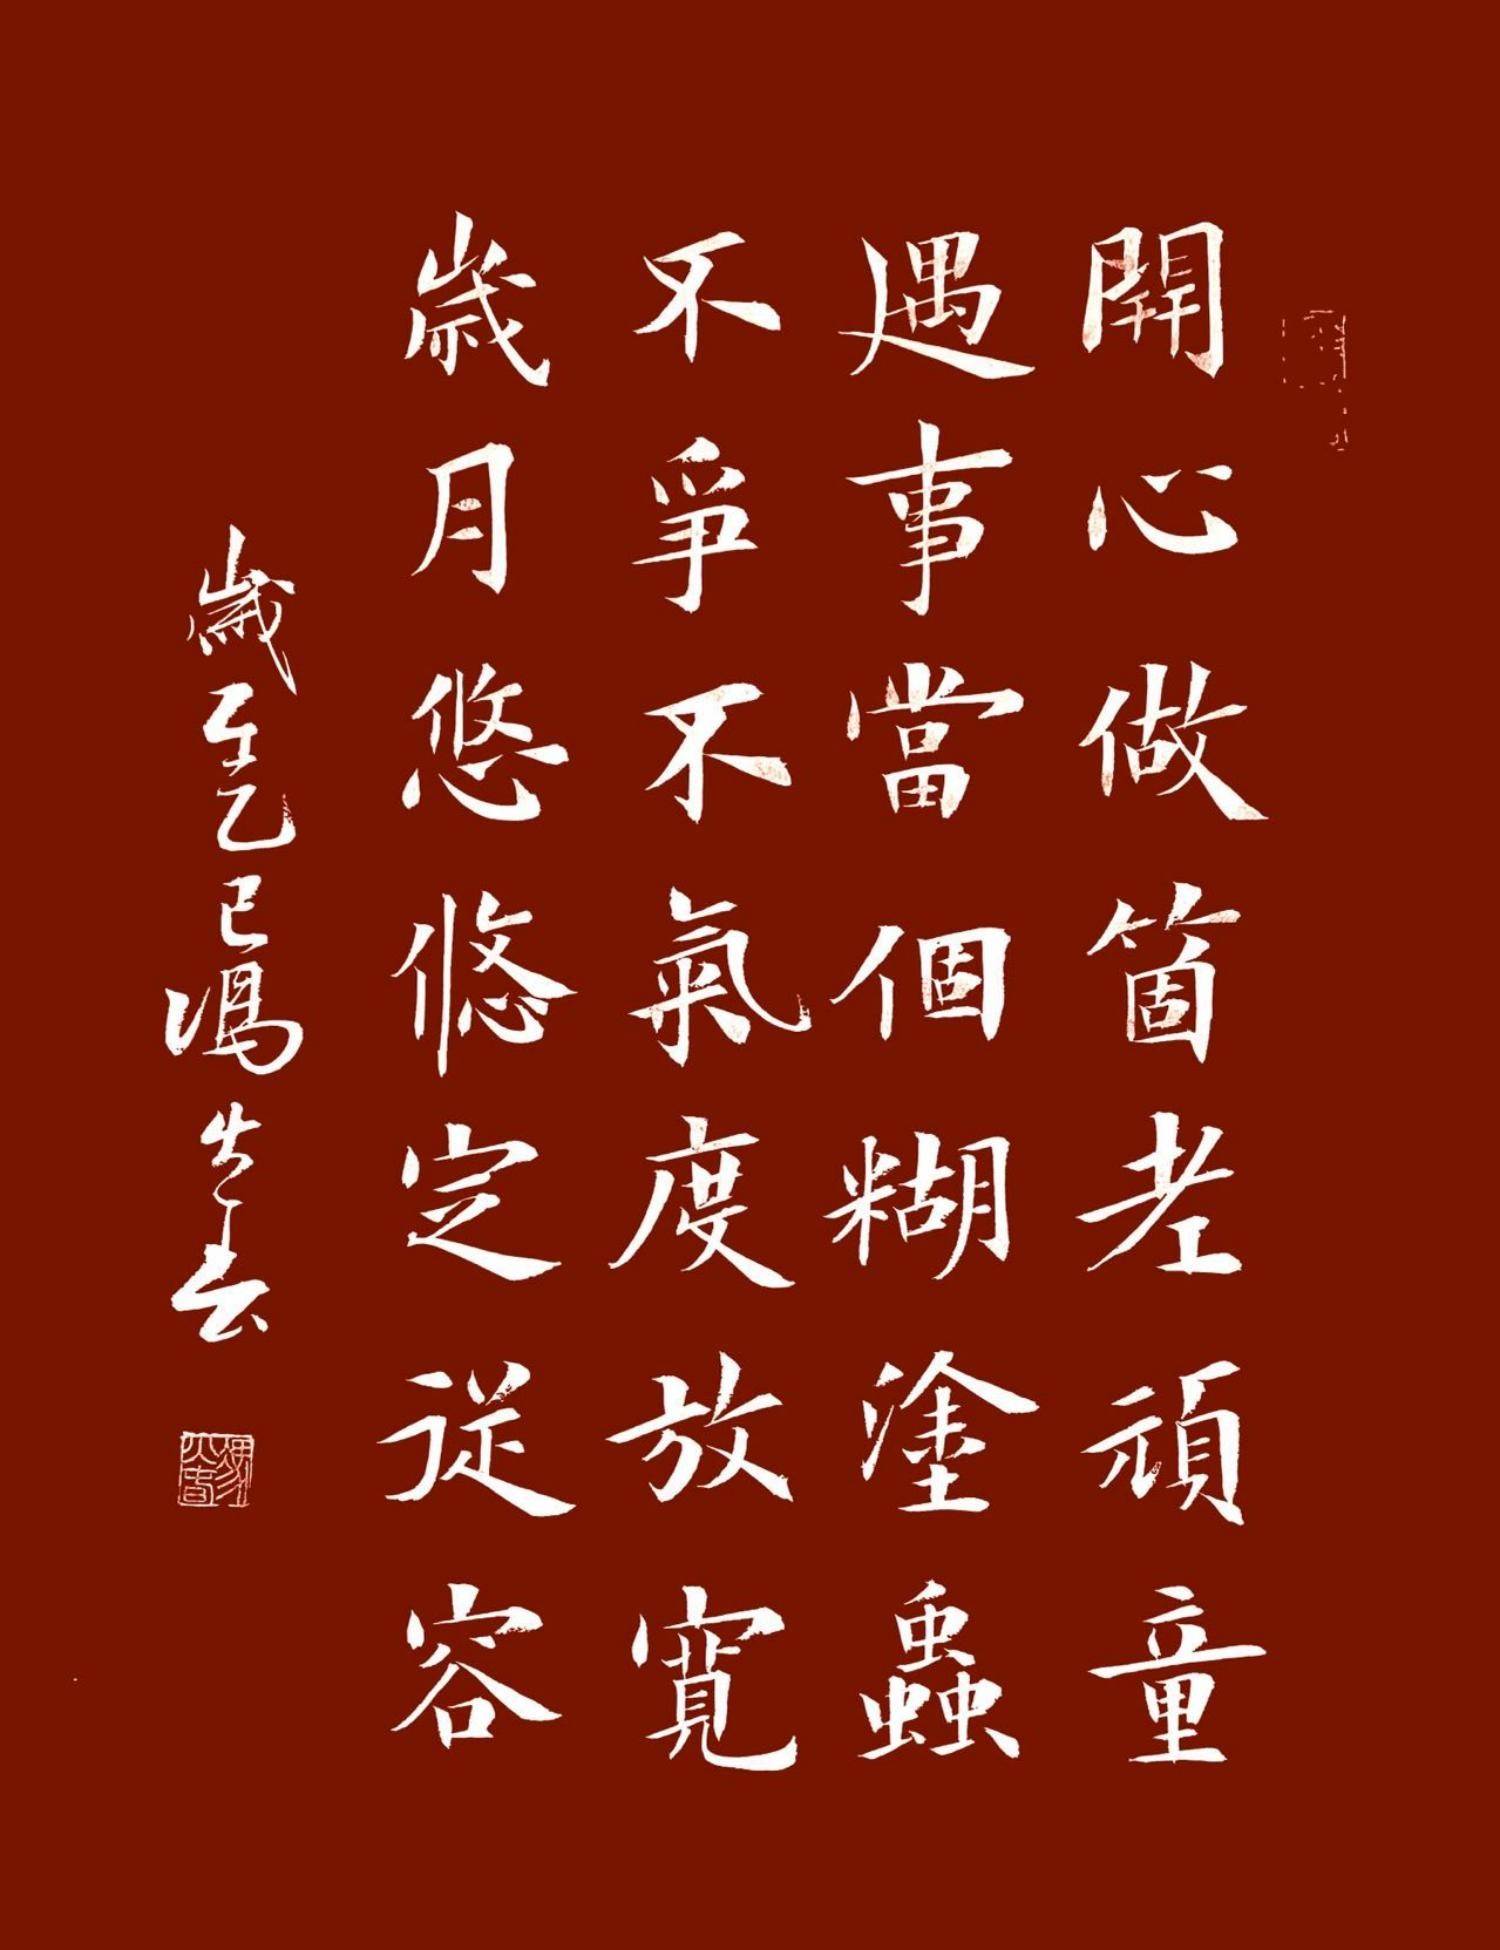 開心做箇老頑童
遇事當個糊塗蟲
不爭不氣度放寬
歲月悠悠定從容
歲在乙巳馮